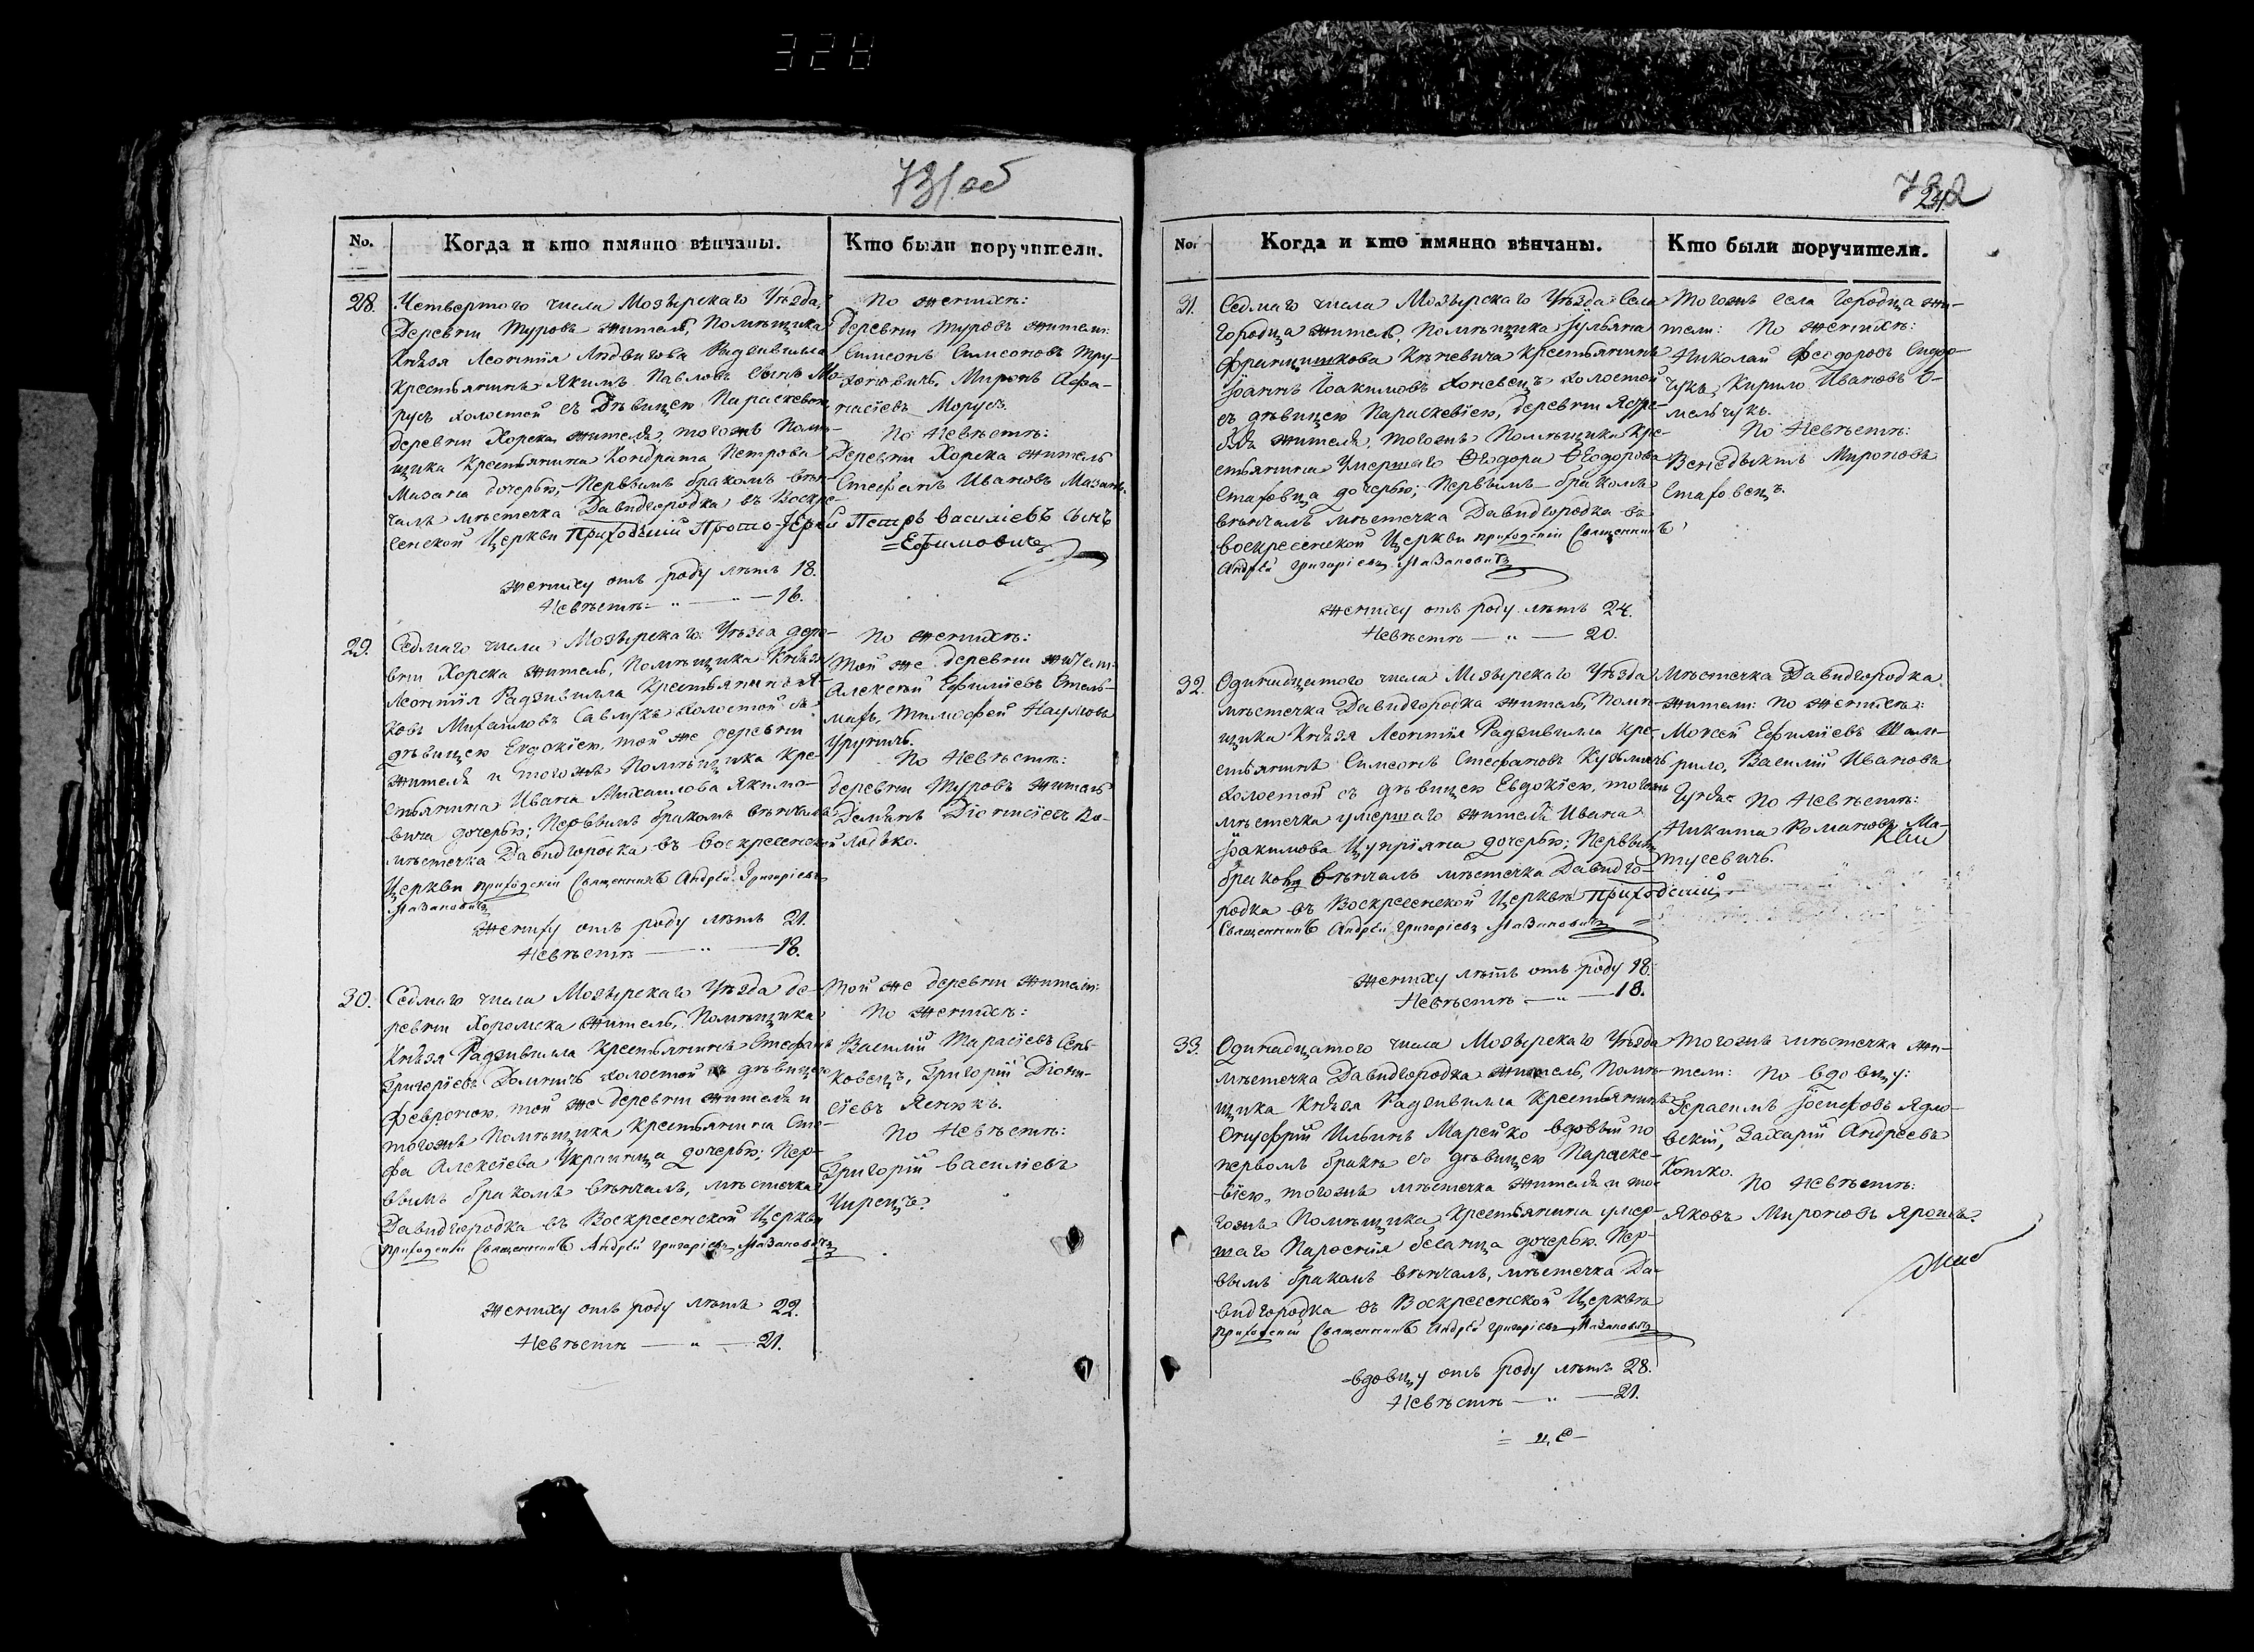 328
731 об
No. Когда и кто имянно вѣнчаны. Кто были поручители.
28. Четвертого числа Мозырскаго Уѣзда,
Деревни Туровъ житель, Помѣщика
Князя Леонтія Людвигова Радзивилла
Крестьянинъ Якимъ Павловъ сынъ Мо-
русъ холостой съ Дѣвицею Параскевою
деревни Хорска жителя, тогожъ Помѣ-
щика Крестьянина Кондрата Петрова
Мазана дочерью; Первымъ бракомъ вѣн-
чалъ мѣстечка Давидгородка въ Воскре-
сенской Церкви Приходскій Прото-Іерей Петръ Василіевъ сынъ
=Ефимовичъ
Жениху отъ роду лѣтъ 18.
Невѣстѣ — " — 16.
По женихѣ:
Деревни Туровъ жители:
Симеонъ Симеоновъ Тру-
хоновичъ, Миронъ Афа-
насіевъ Морусъ.
По Невѣстѣ:
Деревни Хорска житель
Стефанъ Ивановъ Мазанъ.
29. Седмаго числа Мозырскаго Уѣзда дере-
вни Хорска житель, Помѣщика Князя
Леонтія Радзивилла Крестьянинъ Я-
ковъ Михаиловъ Савлукъ холостой съ
дѣвицею Евдокіею, той же деревни
жителя и тогожъ Помѣщика Кре-
стьянина Ивана Михаилова Якимо-
вича дочерью; Первымъ бракомъ вѣнчалъ
мѣстечка Давидгородка въ Воскресенской
Церкви приходскій Священникъ Андрей Григоріевъ
Мазановичъ
Жениху отъ роду лѣтъ 21.
Невѣстѣ — " — 18.
По женихѣ:
Той же деревни жители:
Алексѣй Ефиміевъ Стель-
махъ, Тимофей Наумовъ
По Невѣстѣ:
деревни Туровъ житель
Деміанъ Діонисіевъ Ко-
лодъко.
30. Седмаго числа Мозырскаго Уѣзда де-
ревни Хоромска житель, Помѣщика
Князя Радзивилла Крестьянинъ Стефанъ
Григоріевъ холостой съ дѣвицею
Февроніею, той же деревни жителя и
тогожъ Помѣщика Крестьянина Сте-
фа Алексіева Украинца дочерью; Пер-
вымъ бракомъ вѣнчалъ, мѣстечка
Давидгородка въ Воскресенской Церкви
приходскій Священникъ Андрей Григоріевъ Мазановичъ
Жениху отъ роду лѣтъ 22.
Невѣстѣ — " — 21.
Той же деревни жители:
По женихѣ:
Василій Тарасіевъ Сень-
ковецъ, Григорій Діони-
сіевъ Ясюкъ.
По Невѣстѣ:
Григорій Василіевъ
Чирецъ.
732
24.
No. Когда и кто имянно вѣнчаны. Кто были поручители.
31. Седмаго числа Мозырскаго Уѣзда Села
Городца житель, Помѣщика Іульяна
Францишкова Кѣневича Крестьянинъ
Іоаннъ Іоакимовъ Хоневецъ холостой
съ дѣвицею Параскевіею, деревни Ястре-
бля жителя, тогожъ Помѣщика Кре-
стьянина Умершаго Ѳеодора Ѳеодорова
Стаховца дочерью; Первымъ бракомъ
вѣнчалъ мѣстечка Давидгородка въ
Воскресенской Церкви приходскій Священникъ
Андрей Григоріевъ Мазановичъ
Жениху отъ роду лѣтъ 24.
Невѣстѣ — " — 20.
Тогожъ села Городца жи-
тели: По женихѣ:
Николай Феодоровъ Сидор-
чукъ, Кирило Ивановъ О-
мельчукъ.
По Невѣстѣ:
Венедыктъ Мироновъ
Стаховецъ.
32. Одинадцатого числа Мозырскаго Уѣзда
мѣстечка Давидгородка житель, Помѣ-
щика Князя Леонтія Радзивилла Кре-
стьянинъ Симеонъ Стефановъ Кузьмичъ
холостой съ дѣвицею Евдокіею, тогожъ
мѣстечка умершаго жителя Ивана
Іоакимова Цупріяна дочерью; Первымъ
бракомъ вѣнчалъ мѣстечка Давидго-
родка въ Воскресенской Церквѣ приходскій
Священникъ Андрей Григоріевъ Мазановичъ =
Жениху лѣтъ отъ роду 18.
Невѣстѣ — " — 18.
Мѣстечка Давидгородка
жители: По женихѣ:
Моисей Ефиміевъ Шапи-
рило, Василій Ивановъ
По Невѣстѣ:
Никита Романовъ Ма-
тусевичъ.
33. Одинадцатого числа Мозырскаго Уѣзда
мѣстечка Давидгородка житель, Помѣ-
щика Князя Радзивилла Крестьянинъ
Онуфрій Ильинъ Марейко вдовый по
первомъ бракѣ съ дѣвицею Параске-
віею, тогожъ мѣстечка жителя и то-
гожъ Помѣщика, Крестьянина умер-
шаго дочерью. Пер-
вымъ бракомъ вѣнчалъ, мѣстечка Да-
видгородка въ Воскресенской Церквѣ
приходскій Священникъ Андрей Григоріевъ Мазановичъ
вдовцу отъ роду лѣтъ 28.
Невѣстѣ — " — 21.
Тогожъ мѣстечка жи-
тели: По вдовцу:
Герасимъ Іосифовъ Ядло-
вскій, Захарій Андреевъ
Котко.
По Невѣстѣ:
Яковъ Мироновъ Ярошъ.